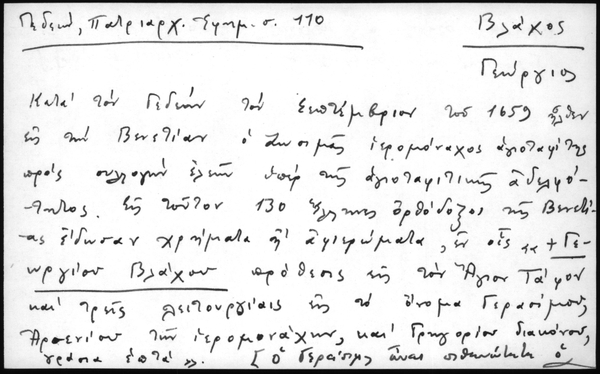 Γεδεών, Πατριαρχ. Εφημ. σ. 110
Βλάχος
Γεώργιος
Κατά τόν Γεδεών τόν Σεπτέμβριον τοῦ 1659 ἦλθεν
εἰς τήν Βενετίαν ὁ Ζωσιμᾶς ἱερομόναχος ἁγιοταφίτης
πρός συλλογήν ἐλεῶν ὑπέρ τῆς ἁγιοταφιτικῆς ἀδελφό-
τητος. Εἰς τοῦτον 130 ἕλληνες ὀρθόδοξοι τῆς Βενετί-
ας ἔδωσαν χρήματα ἤ ἀφιερώματα, ἐν οἷς «+ Γε-
ωργίου Βλάχου πρόθεσις εἰς τόν Ἅγιον Τάφον
καί τρεῖς λειτουργίαις εἰς τό ὄνομα Γερασίμου,
Ἀρσενίου τῶν ἱερομονάχων, καί Γρηγορίου διακόνου,
γρόσια ἑπτά». [ Ὁ Γεράσιμος πιθανώτατα ὁ